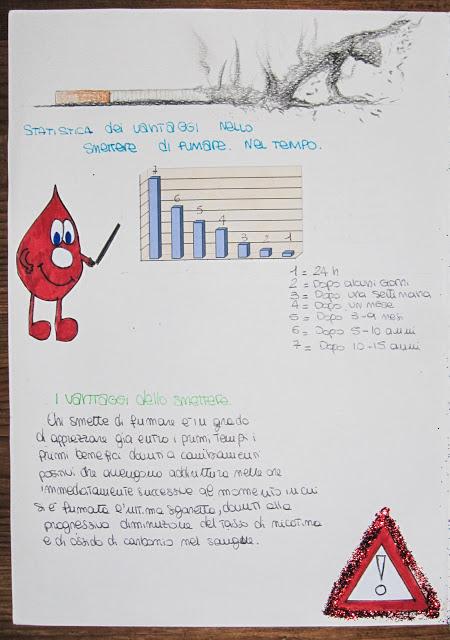 STATISTICA dei VANTAGGI NELLO
SMETTERE DI FUMARE. NEL TEMPO.
7
6
5
4
3
2
1
1 = 24 h
2 = Dopo alcuni giorni
3 = Dopo una settimana
4 = Dopo un mese
5 = Dopo 3-9 mesi
6 = Dopo 5-10 anni
7 = Dopo 10-15 anni
I VANTAGGI dello SMETTERE
Chi smette di fumare è in grado
di apprezzare già entro i primi tempi i
primi benefici dovuti a cambiamenti
positivi che avvengono addirittura nelle ore
immediatamente successive al momento in cui
si è fumata l'ultima sigaretta, dovuti alla
progressiva diminuzione del tasso di nicotina
e di ossido di carbonio nel sangue.
!